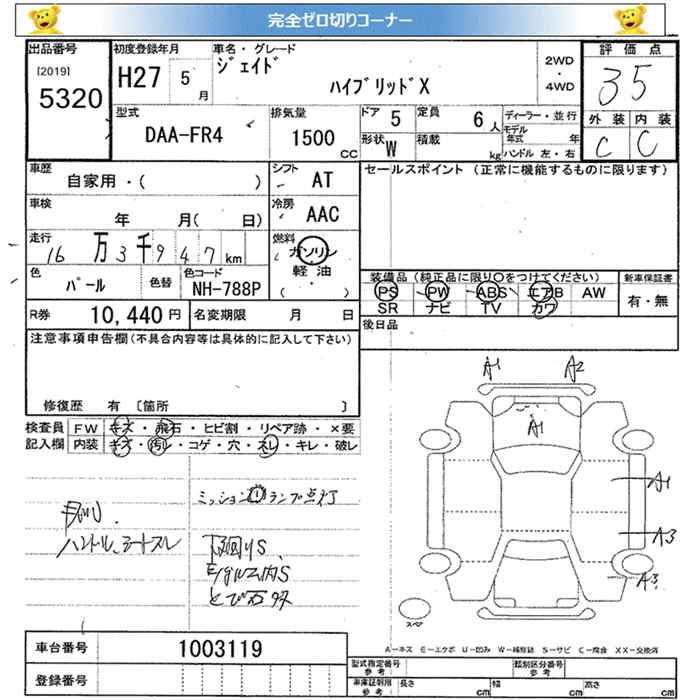 完全ゼロ切りコーナー
出品番号
[2019]
5320
初度登録年月
H27 5月
車名・グレード
ジェイド
ハイブリッドX
2WD
・
4WD
評価点
3.5
外装 内装
C C
型式
DAA-FR4
排気量
1500 CC
ドア 5
定員 6人
形状 W
積載 kg
ディーラー・並行
モデル年式 年
ハンドル 左・右
車歴
自家用・( )
シフト AT
車検
年 月( 日)
冷房 AAC
走行
16万3千947km
燃料
ガソリン
軽油
( ・ )
色
パール
色替
色コード
NH-788P
R券 10,440円
名変期限 月 日
セールスポイント(正常に機能するものに限ります)
装備品(純正品に限り〇をつけてください)
PS PW ABS エアB AW
SR ナビ TV カワ
新車保証書
有・無
後日品
注意事項申告欄(不具合内容等は具体的に記入して下さい)
修復歴 有 〔箇所 〕
検査員 FW キズ・飛石・ヒビ割・リペア跡・×要
記入欄 内装 キズ・汚レ・コゲ・穴・スレ・キレ・破レ
ミッション ランプ点灯
ハンドル、シートスレ
下回りS、
エンジンルーム内S
とび石多
A1 A2
A1
A1
A3
A3
スペア
A-キズ E-エクボ U-凹ミ W-補修跡 S-サビ C-腐食 XX-交換済
車台番号 1003119
登録番号
型式指定番号
参考
類別区分番号
参考
車庫証明用
参考
長さ cm 幅 cm 高さ cm